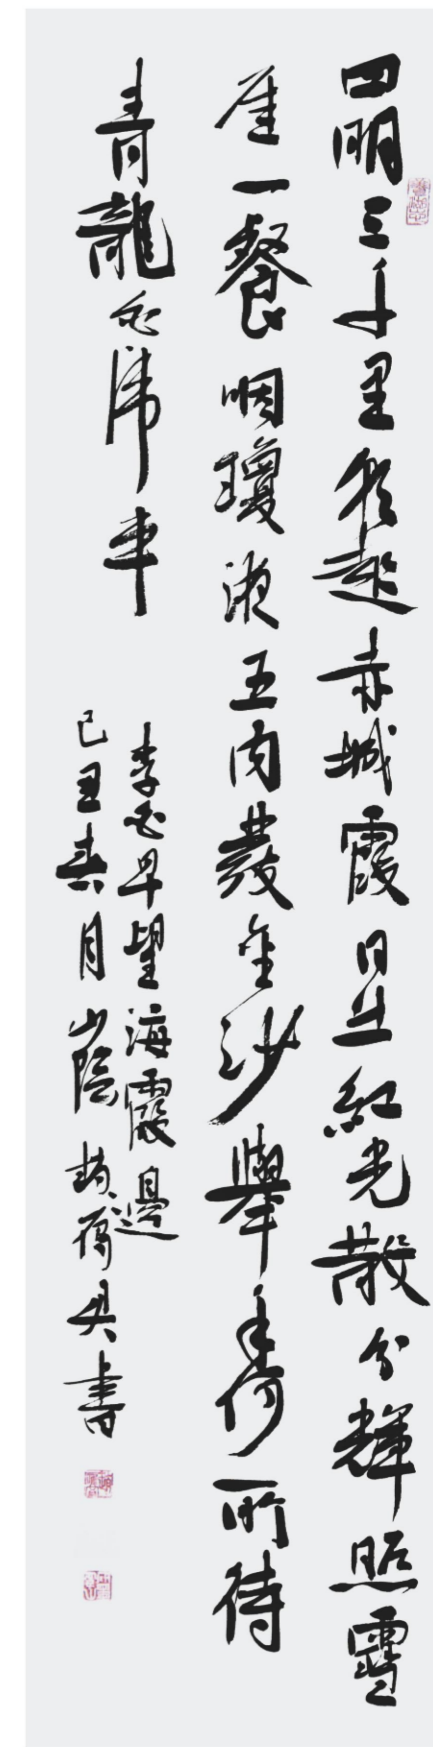 四明三千里朝起赤城霞日出紅光散分輝照雪
崖一餐咽瓊液五內發金沙舉手何所待
青龍白虎車
李白早望海霞邊
己丑春月山陰趙雁君書